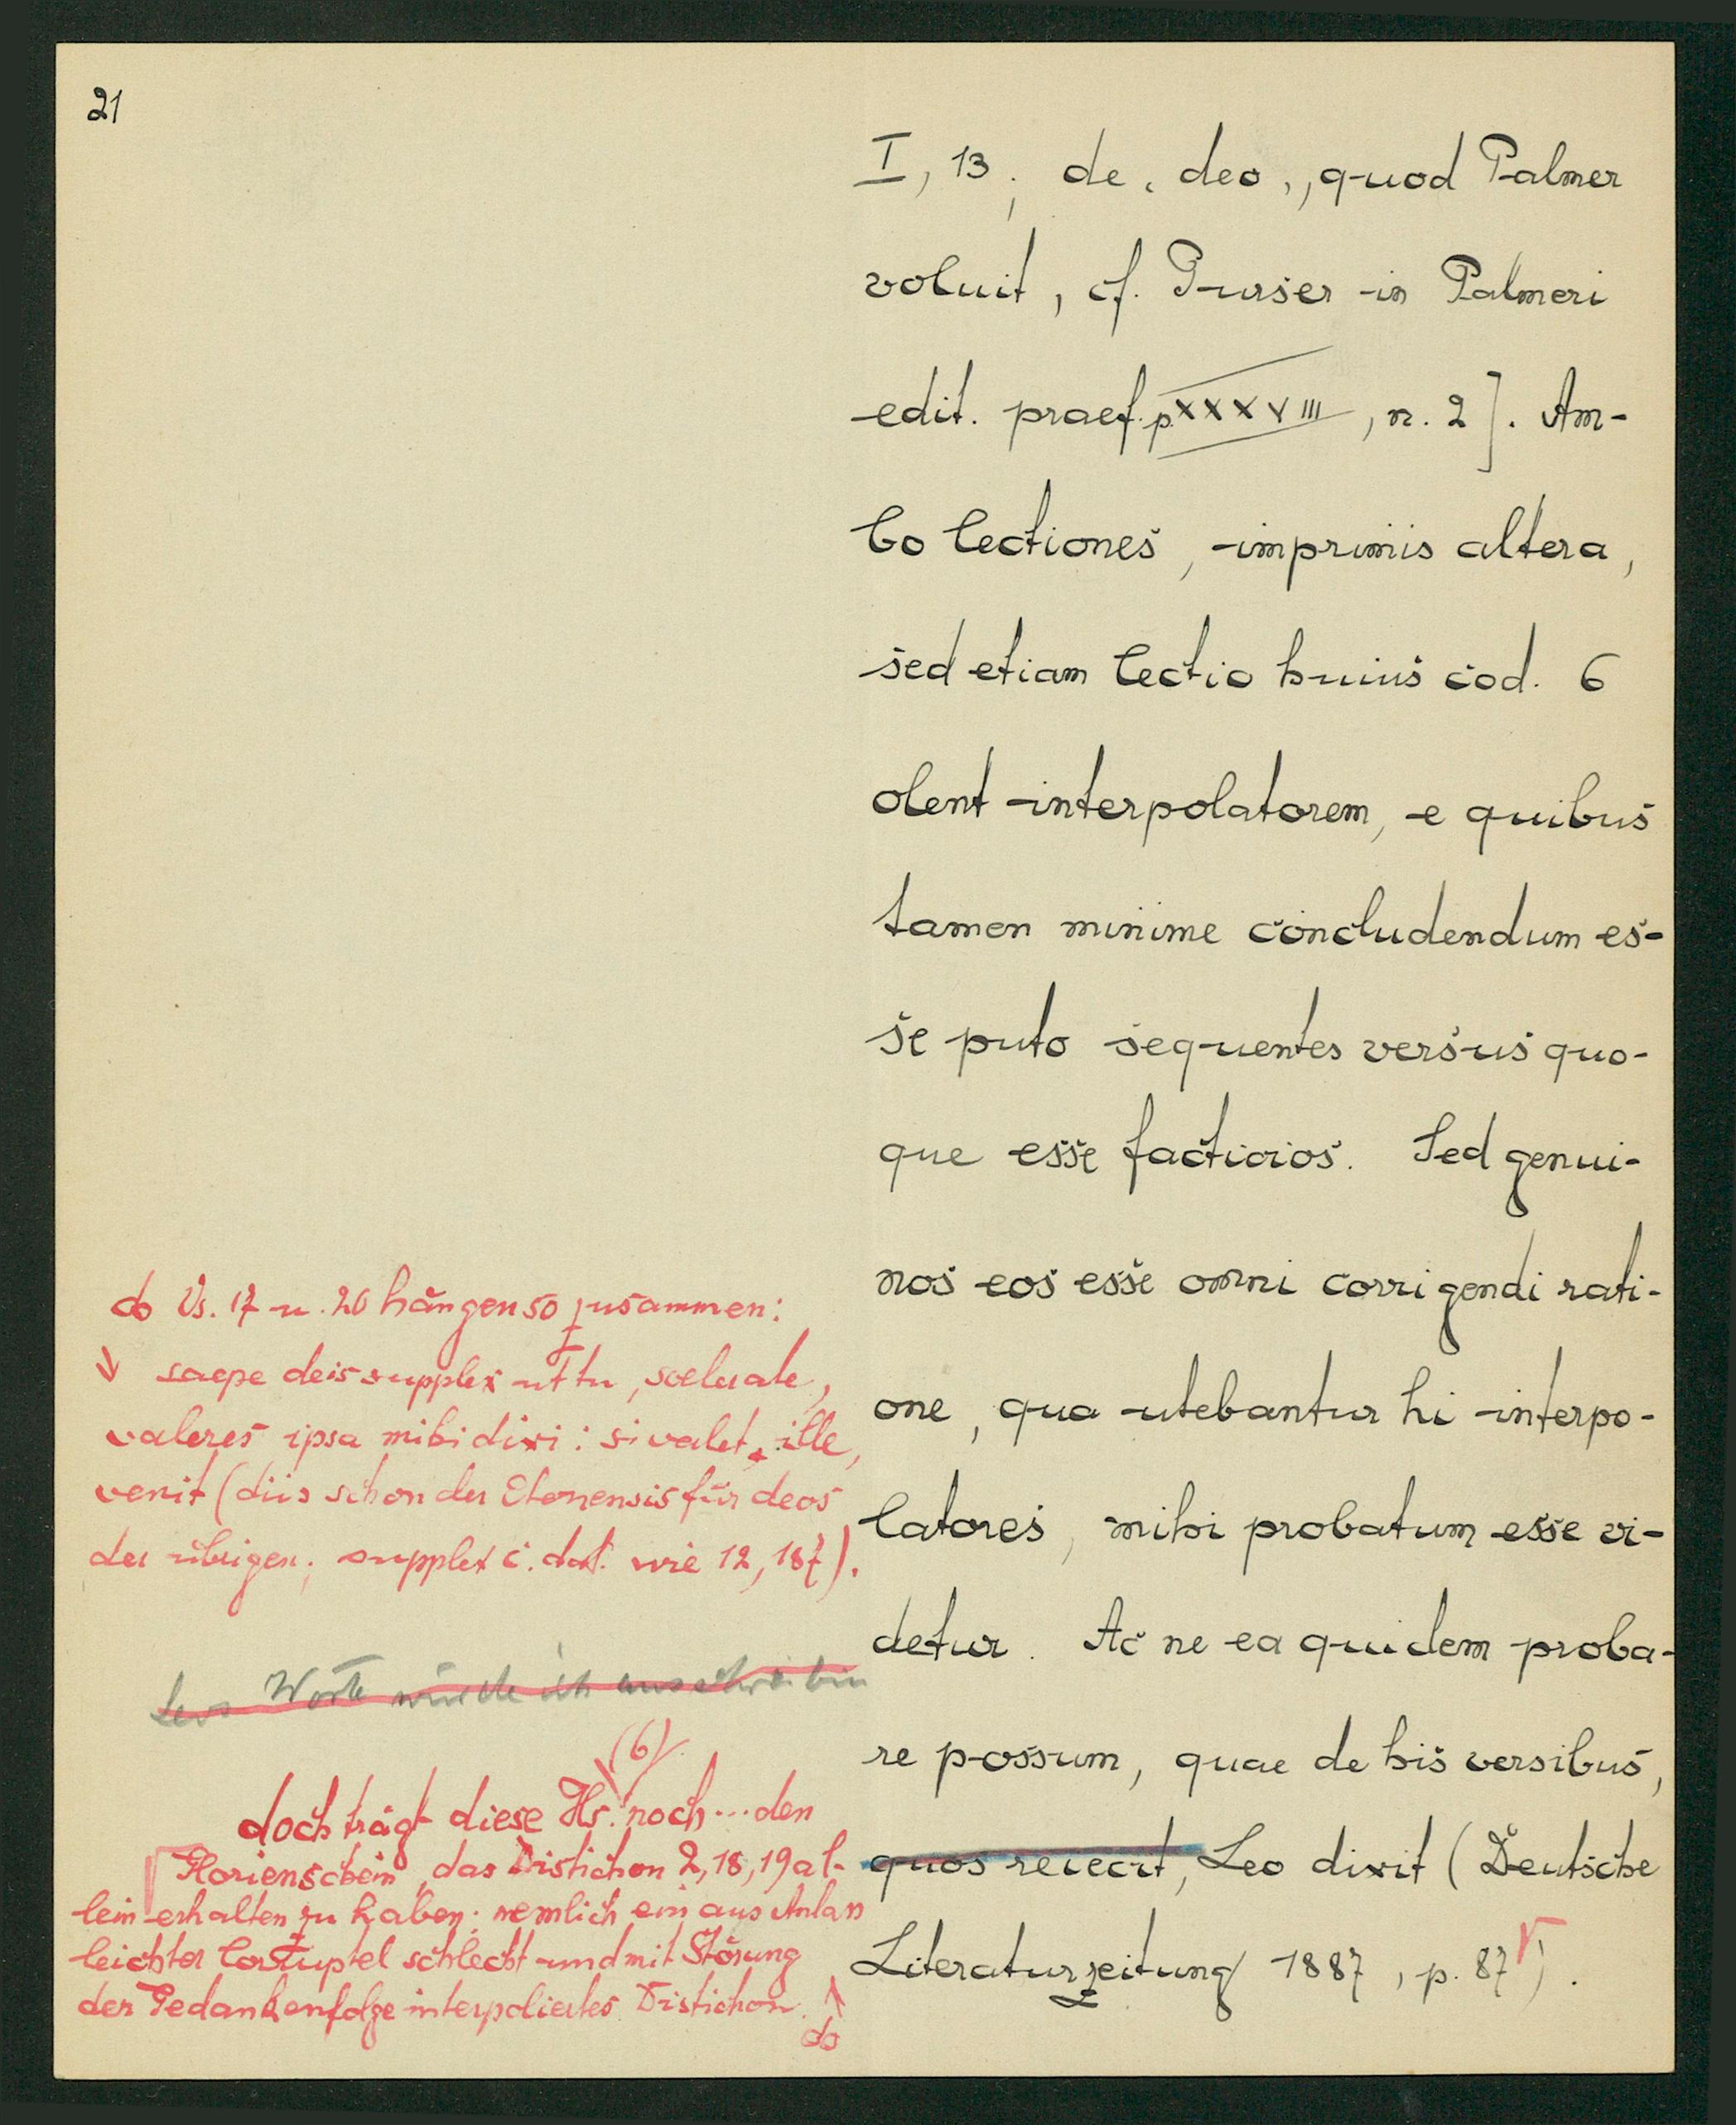 21
I, 13; de ‚deo‚, quod Palmer
voluit, cf. Purser in Palmeri
edit. praef. p. XXXVIII, n. 2]. Am-
bo lectiones, imprimis altera,
sed etiam lectio huius cod. G
olent interpolatorem, e quibus
tamen minime concludendum es-
se puto sequentes versus quo-
que esse facticios. Sed genui-
nos eos esse omni corrigendi rati-
one, qua utebantur hi interpo-
latores, mihi probatum esse vi-
detur. Ac ne ea quidem proba-
re possum, quae de his versibus,
quos reiecit, Leo dixit (Deutsche
Literaturzeitung 1887, p. 87).
Vs. 17 u. 20 hängen so zusammen:
saepe deis supplex ut tu, scelerate,
valeres ipsa mihi dixi: si valet ille,
venit (diis schon der Etonensis für deos
der übrigen; supplex c. dat. wie 12, 187).
Leos Worte würde ich ausschreiben
(6)
doch trägt diese Hs. noch ... den
Glorienschein, das Distichon 2, 18, 19 al-
lein erhalten zu haben; nemlich ein aus Anlass
leichter Corruptel schlecht und mit Störung
der Gedankenfolge interpoliertes Distichon.